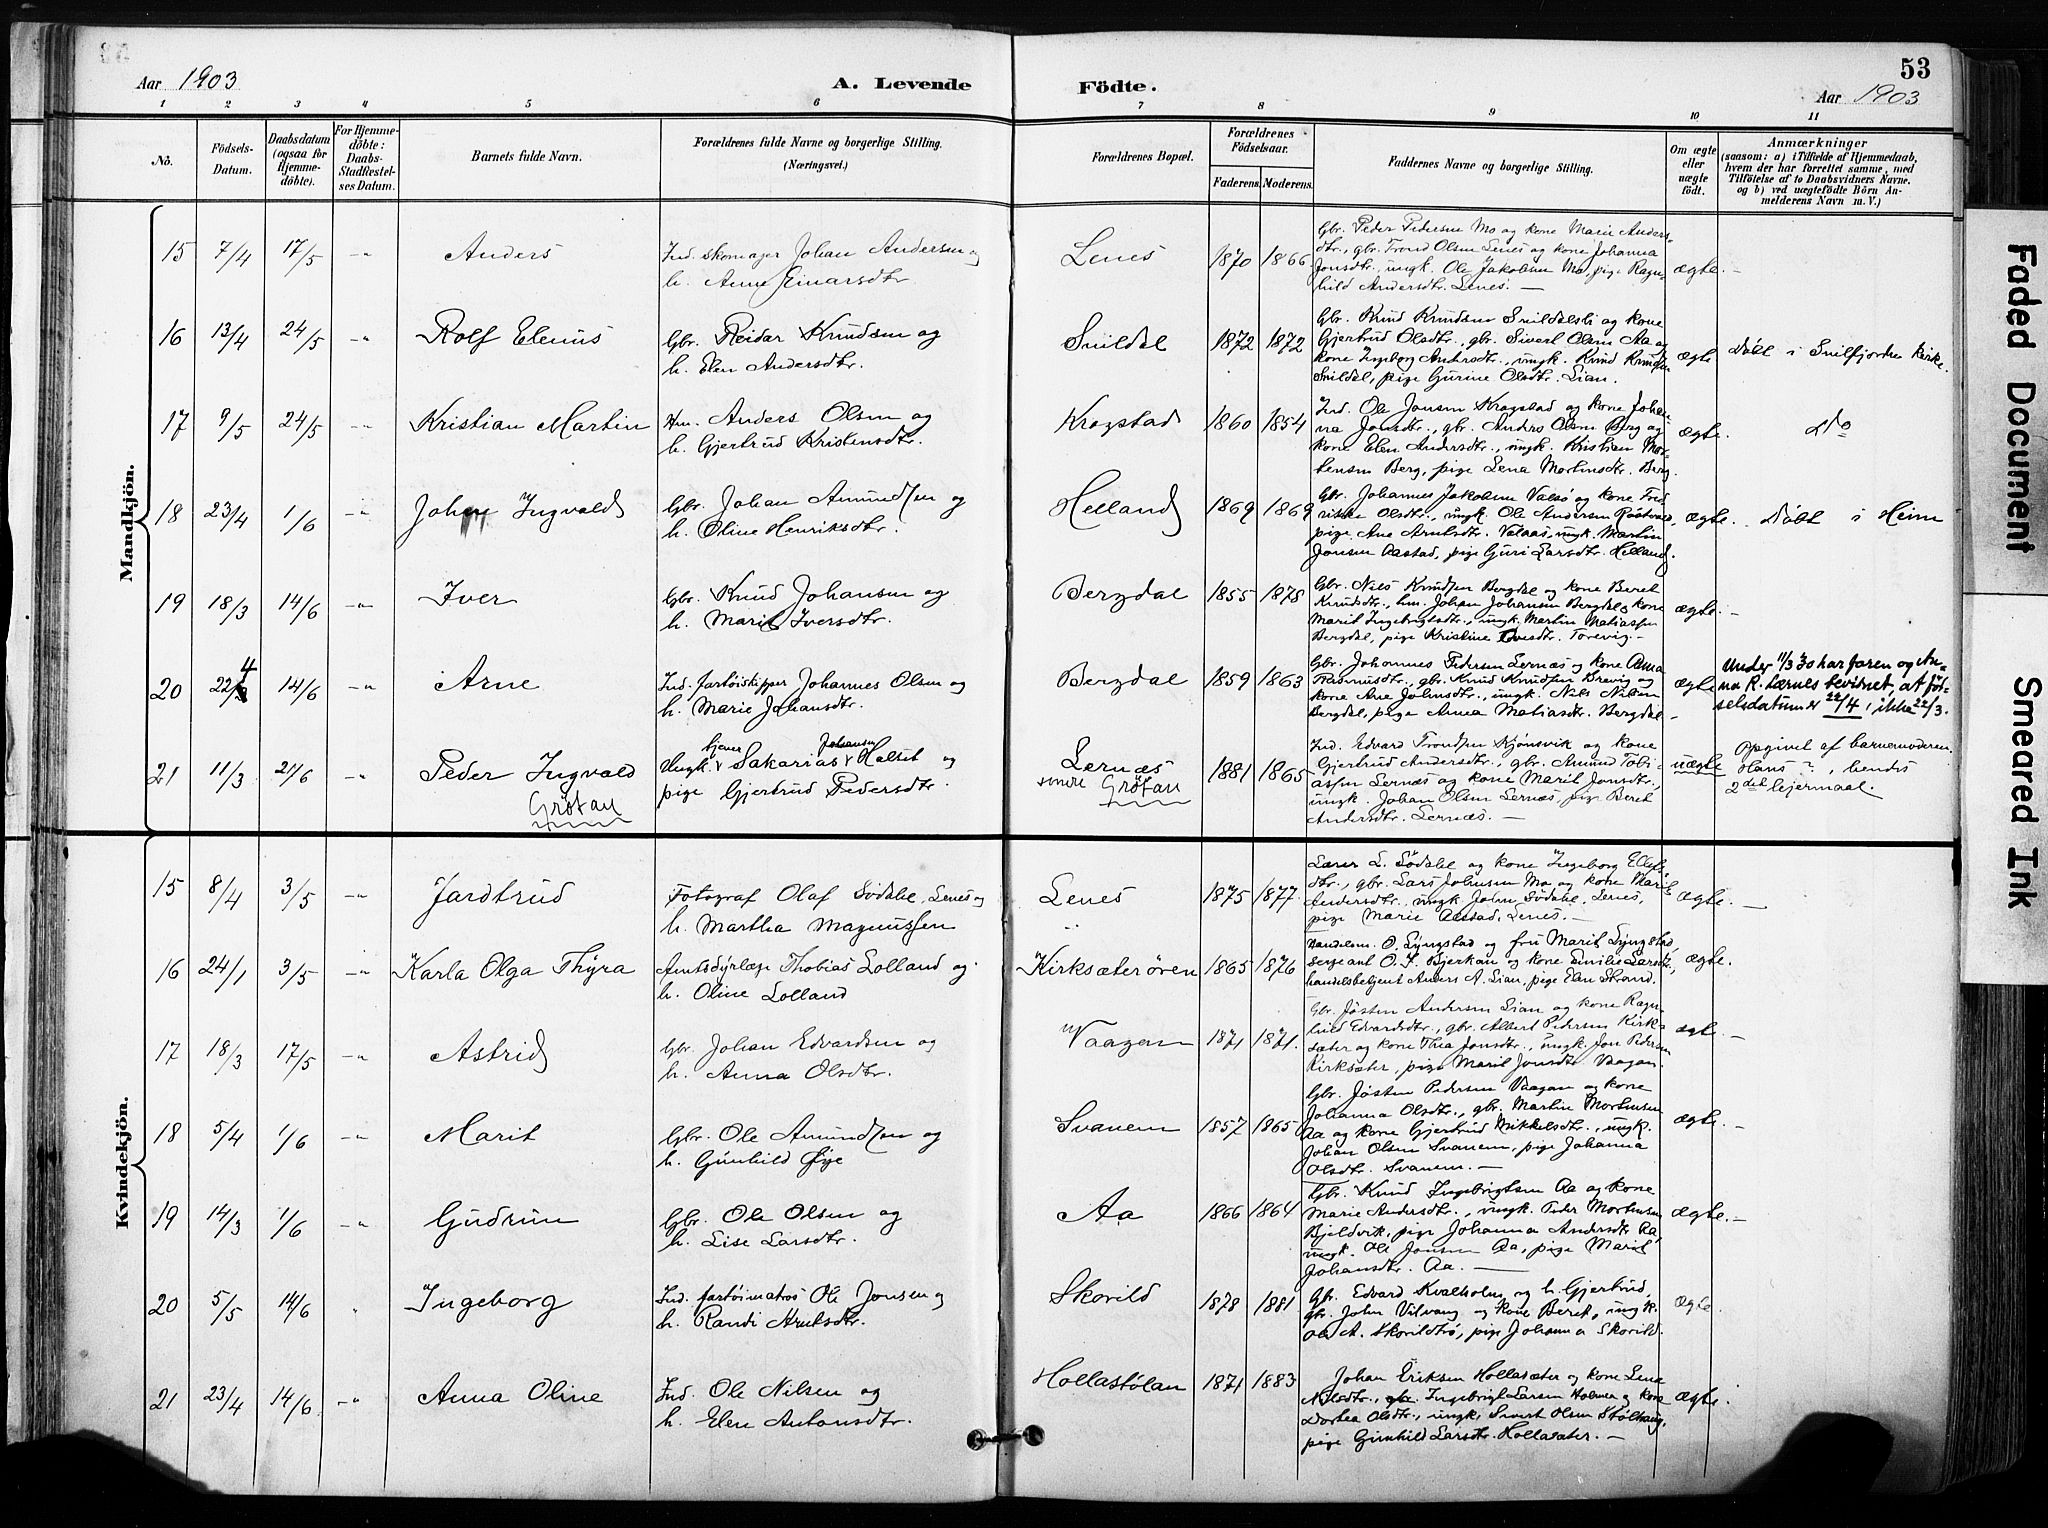 53
Aar 1903
A. Levende
Födte.
Aar 1903
1 2 3 4 5 6 7 8 9 10 11
No.
Födsels-
Datum.
Daabsdatum
(ogsaa for
Hjemme-
döbte).
For Hjemme-
döbte:
Daabs-
Stadfæstel-
ses Datum.
Barnets fulde Navn.
Forældrenes fulde Navne og borgerlige Stilling.
(Næringsvei.)
Forældrenes Bopæl.
Forældrenes
Födselsaar.
Faderens. Moderens.
Faddernes Navne og borgerlige Stilling.
Om ægte
eller
uægte
födt.
Anmærkninger
(saasom: a) i Tilfælde af Hjemmedaab,
hvem der har forrettet samme, med
Tilföielse af to Daabsvidners Navne,
og b) ved uægtefödte Börn An-
melderens Navn m. V.)
Mandkjön.
15 7/4 17/5 -"- Anders
Ind. skomager Johan Andersen og
h. Anne Einarsdtr
Lenes 1870 1866
Gbr. Peder Pedersen Mo og kone Marie Anders-
dtr., gbr. Trond Olsen Lenes og kone Johanna
Jonsdtr., ungk. Ole Jakobsen Mo, pige Ragn-
hild Andersdtr. Lenes. —
ægte. —
16 13/4 24/5 -"- Rolf Elenus
Gbr. Reidar Knudsen og
h. Elen Andersdtr.
Snildal 1872 1872
Gbr. Knud Knudsen Snildalsli og kone
Gjertrud Olsdtr., gbr. Sivert Olsen Aa og
kone Ingeborg Andersdtr., ungk. Knud Knudsen
Snildal, pige Gurine Olsdtr. Lian.
ægte Döbt i Snilfjorden kirke.
17 9/5 24/5 -"- Kristian Martin
Hm. Anders Olsen og
h. Gjertrud Kristensdtr.
Krogstad 1860 1854
Ind. Ole Jonsen Krogstad og kone Johan-
na Jonsdtr., gbr. Anders Olsen Berg og
kone Elen Andersdtr., ungk. Kristian Mor-
tensen Berg, pige Lena Mortensdtr. Berg.
ægte. do
18 23/4 1/6 -"- Johan Ingvald
Gbr. Johan Amundsen og
h. Oline Henriksdtr.
Helland 1869 1869
Gbr. Johannes Jakobsen Valsö og kone Fred-
rikke Olsdtr., ungk. Ole Andersen
pige Ane Arntsdtr. Valaas, ungk. Martin
Jonsen Aastad, pige Guri Larsdtr. Helland.
ægte. Döbt i Heim
19 18/3 14/6 -"- Iver
Gbr. Knud Johansen og
h. Marit Iversdtr.
Bergdal 1855 1878
Gbr. Nils Knudsen Bergdal og kone Beret
Knudsdtr., hm. Johan Johansen Bergdal & kone
Marit Ingebrigtsdtr., ungk. Martin Matiassen
Bergdal, pige Kristine Ovesdtr. Torevig. —
ægte. —
20 22/4 14/6 -"- Arne
Ind. fartöiskipper Johannes Olsen og
h. Marie Johansdtr.
Bergdal 1859 1863
Gbr. Johannes Pedersen Lernæs og kone Anna
Rasmusdtr., gbr. Knud Knudsen Brevig og
kone Ane Johnsdtr., ungk. Nils Nilsen
Bergdal, pige Anna Matiasdtr. Bergdal. —
ægte
Under 11/3 30 har faren og An-
na R. Lærnes bevidnet, at föd-
selsdatum er 22/4, ikke 22/3.
21 11/3 21/6 -"- Peder Ingvald
Grötan
tjener Johansen
Ungk. Sakarias Halset og
pige Gjertrud Pedersdtr.
Lernæs
Grötan
1881 1865
Ind. Edvard Trondsen Kjönsvik og kone
Gjertrud Andersdtr., gbr. Amund Tobi-
assen Lernæs og kone Marit Jonsdtr.,
ungk. Johan Olsen Lernæs, pige Beret
Andersdtr. Lernæs. —
uægte
Opgivet af barnemoderen.
Hans ?, hendes
2det leiermaal.
Kvindekjön.
15 8/4 3/5 -"- Jardtrud
Fotograf Olaf Södahl, Lenes og
h. Martha Magnussen
Lenes 1875 1877
Lærer L. Södahl og kone Ingeborg Ellefs-
dtr., gbr. Lars Johnsen Mo og kone Marit
Andersdtr., ungk John Södahl, Lenes,
pige Marie Aastad, Lenes. —
ægte. —
16 24/1 3/5 -"- Karla Olga Thyra
Amtsdyrlæge Thobias Lolland og
h. Oline Lolland
Kirksæterören 1865 1876
Handelsm. O. Lyngstad og fru Marit Lyngstad,
sergeant O. J. Bjerkan og kone Emilie Larsdtr.,
handelsbetjent Anders A. Lian, pige Elen Strand.
ægte.
17 18/3 17/5 -"- Astrid
Gbr. Johan Edvardsen og
h. Anna Olsdtr.
Vaagan 1871 1871.
Gbr. Jösten Andersen Lian og kone Ragn-
hild Edvardsdtr., gbr. Albert Pedersen Kirk-
sæter og kone Thea Jonsdtr., ungk. Jon Pedersen
Kirksæter, pige Marit Jonsdtr. Vaagan.
ægte. —
18 5/4 1/6 -"- Marit
Gbr. Ole Amundsen og
h. Gunhild Öye
Svanem 1857 1865
Gbr. Jösten Pedersen Vaagan og kone
Johanna Olsdtr., gbr. Martin Mortensen
Aa og kone Gjertrud Mikkelsdtr., ungk.
Johan Olsen Svanem, pige Johanna
Olsdtr. Svanem. —
ægte. —
19 14/3 1/6 -"- Gudrun
Gbr. Ole Olsen og
h. Lise Larsdtr.
Aa 1866 1864
Gbr. Knud Ingebrigtsen Aa og kone
Marie Andersdtr., ungk. Peder Mortensen
Bjeldvik, pige Johanna Andersdtr Aa,
ungk. Ole Jonsen Aa, pige Marit
Johansdtr. Aa. —
ægte. —
20 5/5 14/6 " Ingeborg
Ind. fartöimatros Ole Jonsen og
h. Randi Arntsdtr.
Skorild 1878 1881
Gbr. Edvard Kvalholm og h. Gjertrud,
gbr. John Vitvang og kone Beret, ungk.
Ole A. Skorildtrö, pige Johanna Skorild.
ægte.
21 23/4 14/6 -"- Anna Oline
Ind. Ole Nilsen og
h. Elen Antonsdtr.
Hollastölan 1871 1883
Johan Eriksen Hollasæter og kone Lena
Nilsdtr., gbr. Ingebrigt Larsen Holmen og kone
Dortea Olsdtr., ungk. Sivert Olsen Stölhaug,
pige Gunhild Larsdtr. Hollasæter. —
ægte.
Faded Document
Smeared Ink